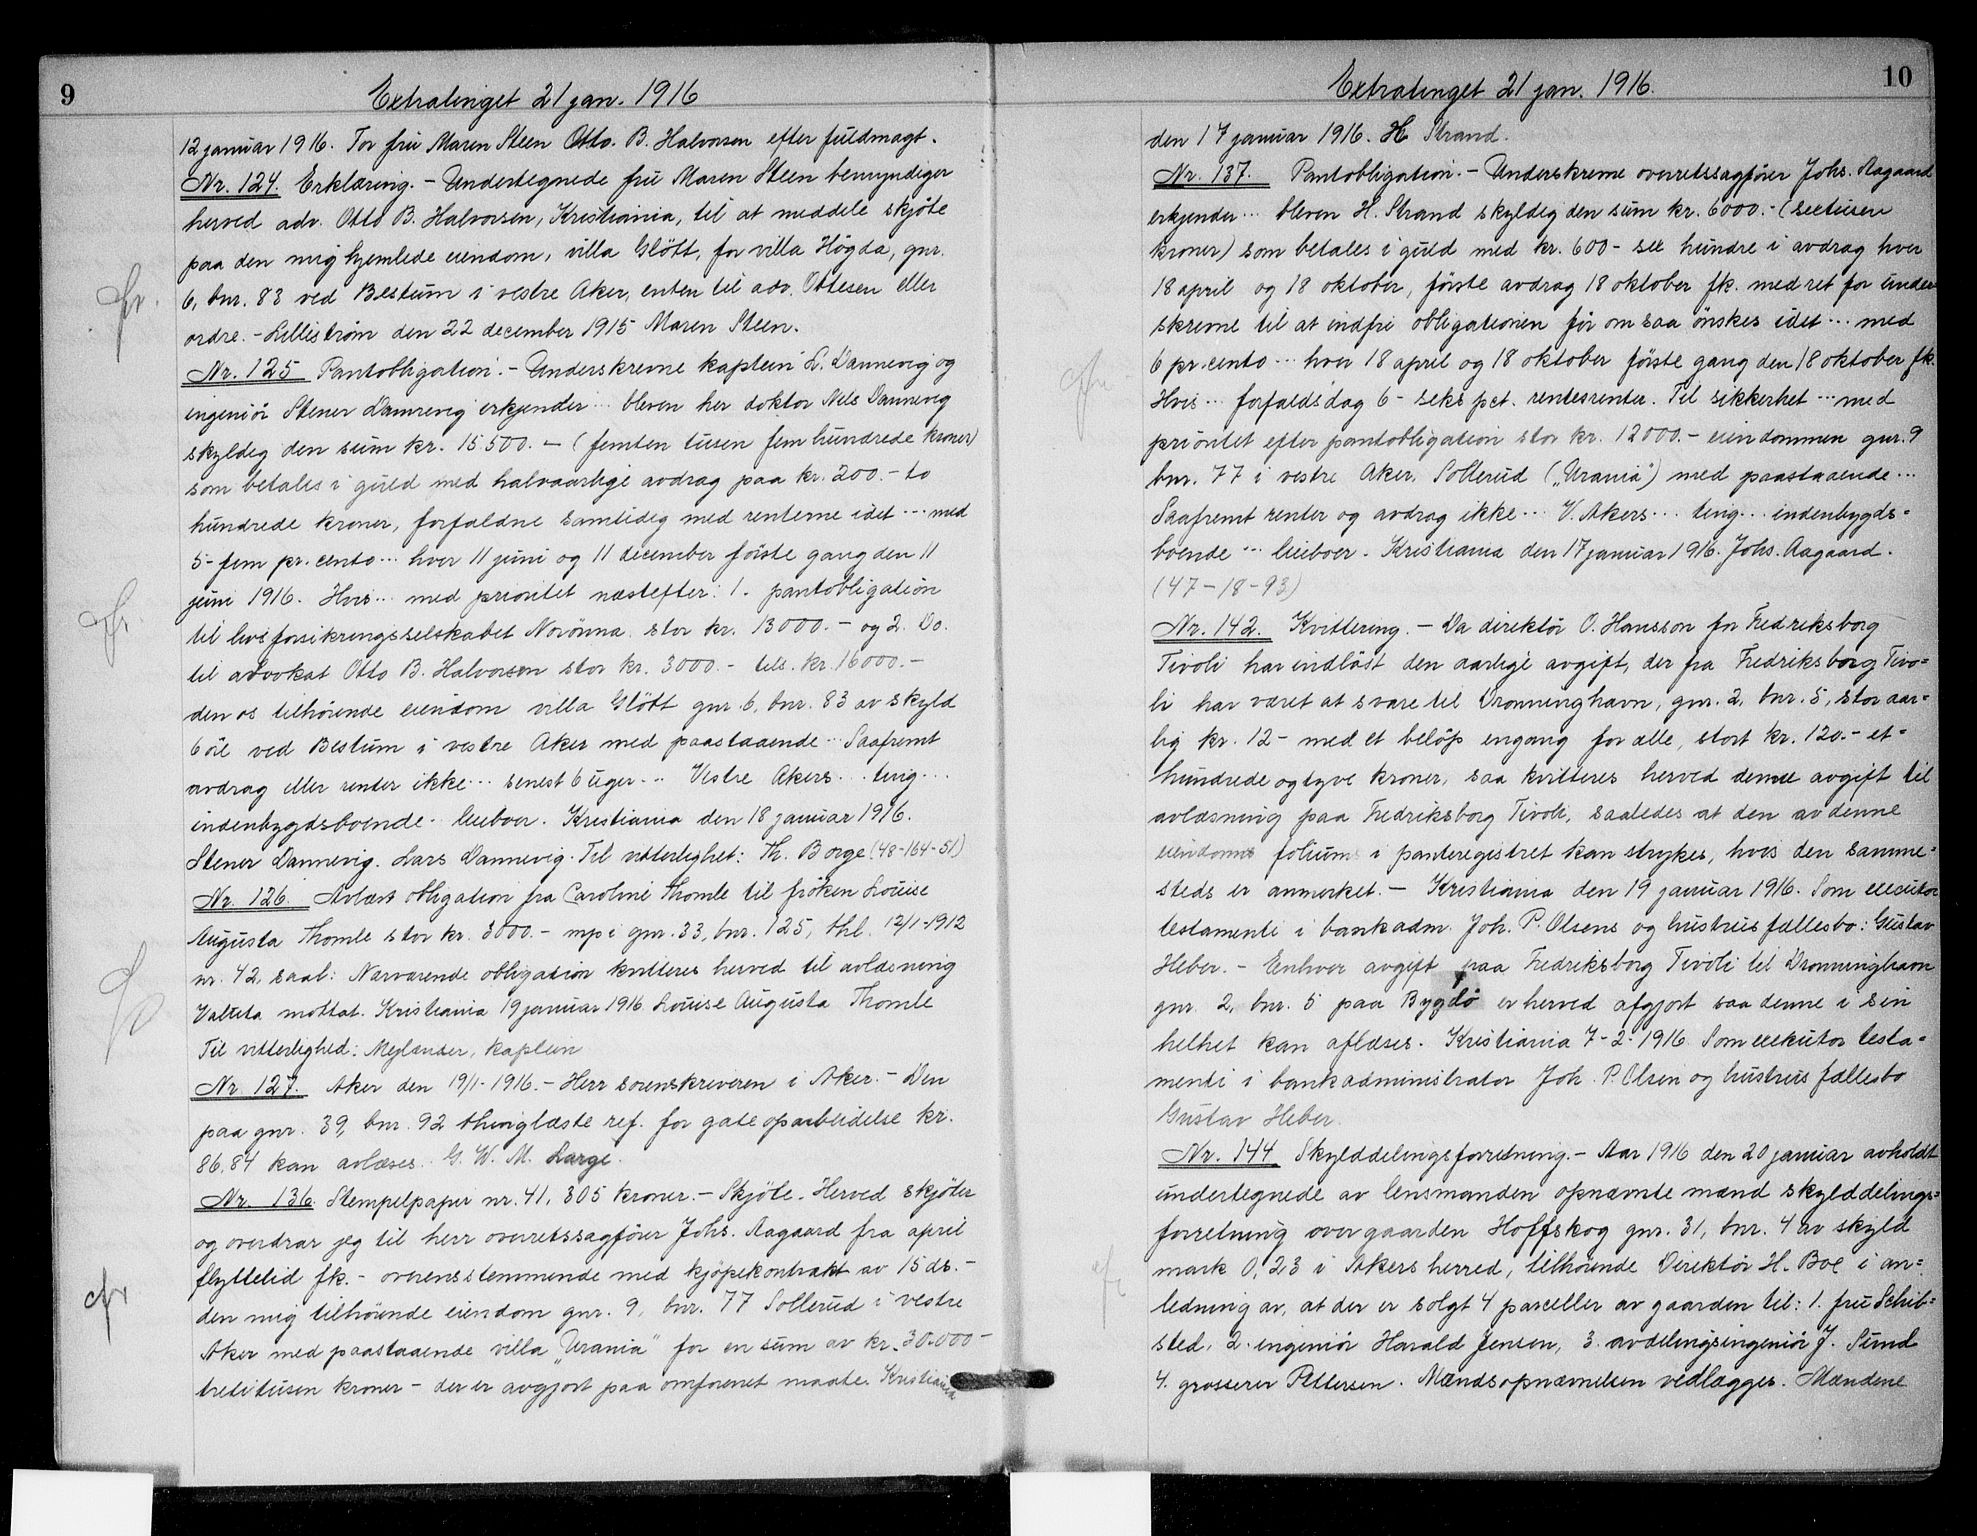 9
Extratinget 21 jan. 1916
12 januar 1916. For fru Maren Steen Otto. B. Halvorsen efter fuldmagt.
Nr. 124. Erklæring. - Undertegnede fru Maren Steen bemyndiger
herved adv. Otto B. Halvorsen, Kristiania, til at meddele skjöte
paa den mig hjemlede eiendom, villa Glött, før villa Högda, gnr.
6, bnr. 83 ved Bestum i vestre Aker, enten til adv. Ottesen eller
ordre. - Lilleström den 22 december 1915 Maren Steen.
Nr. 125 Pantobligation. - Underskrevne kaptein L. Dannevig og
ingeniör Stener Dannevig erkjender ... bleven her doktor Niels Dannevig
skyldig den sum kr. 15500. - (femten tusen fem hundrede kroner)
som betales i guld med halvaarlige avdrag paa kr. 200. - to
hundrede kroner, forfaldne samtidig med renterne idet ... med
5 - fem pr. cento ... hver 11 juni og 11 december förste gang den 11
juni 1916. Hvis ... med prioritet næstefter: 1. pantobligation
til livsforsikringsselskabet Norönna stor kr. 13000. - og 2. Do.
til advokat Otto B. Halvorsen stor kr. 3000. - tils. kr. 16000. -
den os tilhörende eiendom villa Glött gnr. 6, bnr. 83 av skyld
6 öre ved Bestum i vestre Aker med paastaaende ... Saafremt
avdrag eller renter ikke ... senest 6 uger ... Vestre Akers ... ting ...
indenbygdsboende. leieboer. Kristiania den 18 januar 1916.
Stener Dannevig. Lars Dannevig. Til vitterlighet: Th. Borge (48-164-51)
Nr. 126. Avlæst obligation fra Caroline Thomle til fröken Louise
Augusta Thomle stor kr. 3000. - mp i gnr. 33, bnr. 125, thl. 12/1-1912
nr. 42, saal: Nærværende obligation kvitteres herved til avlæsning
Valuta mottat. Kristiania 19 januar 1916 Louise Augusta Thomle
Til vitterlighed: Mejlænder, kaptein
Nr. 127. Aker den 19/1-1916. - Herr sorenskriveren i Aker. - Den
paa gnr. 39, bnr. 92 thinglæste ref. for gateoparbeidelse kr.
86.84 kan avlæses. G. W. M. Large.
Nr. 136. Stempelpapir nr. 41, 305 kroner. - Skjöte. Herved skjöter
og overdrar jeg til herr overretssagförer Johs. Aagaard fra april
flyttetid fk. - overensstemmende med kjöpekontrakt av 15 ds. -
den mig tilhörende eiendom gnr. 9, bnr. 77 Sollerud i vestre
Aker med paastaaende villa „Urania" for en sum av kr. 30.000 -
treti tusen kroner - der er avgjort paa omforenet maate. Kristiania
10
Extratinget 21 jan. 1916.
den 17 januar 1916. H Strand.
Nr. 137. Pantobligation. - Underskrevne overretssagförer Johs. Aagaard
erkjender ... bleven H. Strand skyldig den sum kr. 6000. - (sextusen
kroner) som betales i guld med kr. 600 - sex hundre i avdrag hver
18 april og 18 oktober, förste avdrag 18 oktober fk. med ret for under-
skrevne til at indfri obligationen för om saa önskes idet ... med
6 pr. cento ... hver 18 april og 18 oktober förste gang den 18 oktober fk.
Hvis ... forfaldsdag 6 - seks pct. rentesrenter. Til sikkerhet ... med
prioritet efter pantobligation stor kr. 12000. - eiendommen gnr. 9
bnr. 77 i vestre Aker, Sollerud („Urania") med paastaaende ...
Saafremt renter og avdrag ikke ... V. Akers ... ting ... indenbygds-
boende ... leieboer. Kristiania den 17 januar 1916. Johs. Aagaard.
(47-18-93)
Nr. 142. Kvittering. - Da direktör O. Hansson for Fredriksborg
Tivoli har indlöst den aarlige avgift, der fra Fredriksborg Tivo-
li har været at svare til Dronninghavn, gnr. 2, bnr. 5, stor aar-
lig kr. 12 - med et belöp engang for alle, stort kr. 120. - et-
hundrede og tyve kroner, saa kvitteres herved denne avgift til
avlæsning paa Fredriksborg Tivoli, saaledes at den av denne
eiendoms folium i panteregistret kan strykes, hvis den samme-
steds er anmerket. - Kristiania den 19 januar 1916. Som executor
testamenti i bankadm. Joh. P. Olsens og hustrus fællesbo: Gustav
Heber. - Enhver avgift paa Fredriksborg Tivoli til Dronninghavn
gnr. 2, bnr. 5 paa Bygdö er herved afgjort saa denne i sin
helhet kan aflæses. Kristiania 7-2-1916. Som executor testa-
menti i bankadministrator Joh. P. Olsen og hustrus fællesbo
Gustav Heber.
Nr. 144 Skylddelingsforretning. - Aar 1916 den 20 januar avholdt
undertegnede av lensmanden opnævnte mænd skylddelings-
forretning over gaarden Hoffskog gnr. 31, bnr. 4 av skyld
mark 0,23 i Akers herred, tilhörende Direktör H. Boe i an-
ledning av, at der er solgt 4 parceller av gaarden til: 1. fru Schib-
sted, 2. ingeniör Harald Jensen, 3. avdelingsingeniör J. Sund
4. grosserer Pettersen. Mændsopnævnelsen vedlægges. Mændene